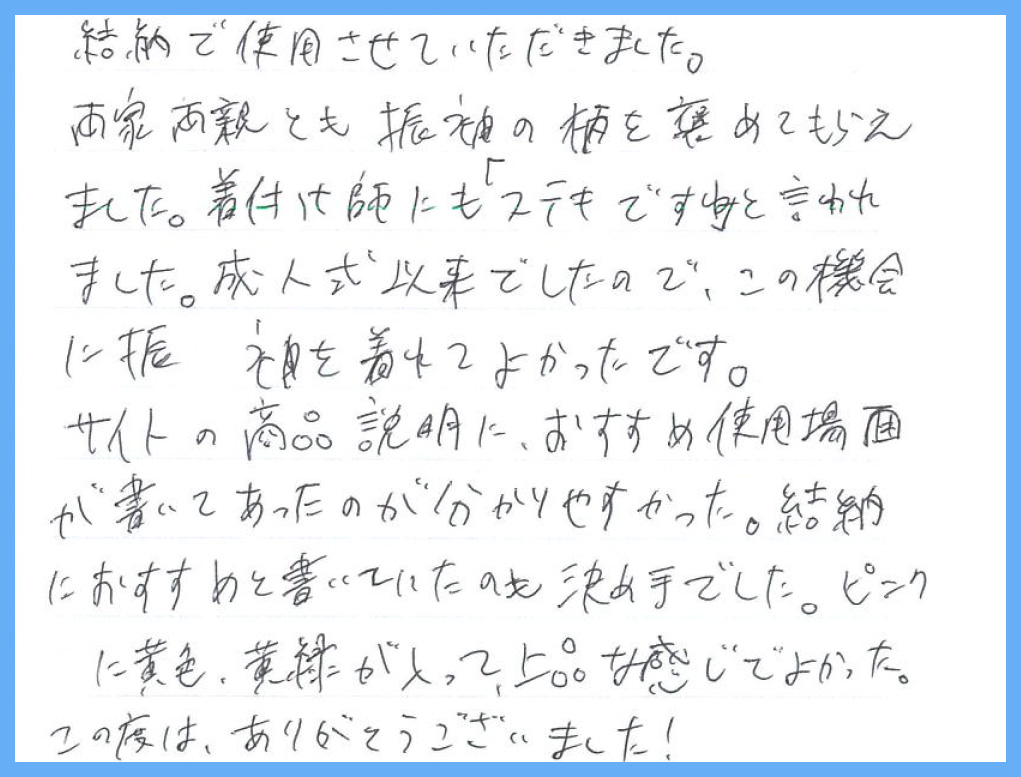 結納で使用させていただきました。
両家両親とも振袖の柄を褒めてもらえ
ました。着付け師にも「ステキですねと言われ
ました。成人式以来でしたので、この機会
に振 袖を着れてよかったです。
サイトの商品説明に、おすすめ使用場面
が書いてあったのが分かりやすかった。結納
におすすめと書いていたのも決め手でした。ピンク
に黄色、黄緑が入って、上品な感じでよかった。
この度は、ありがとうございました!